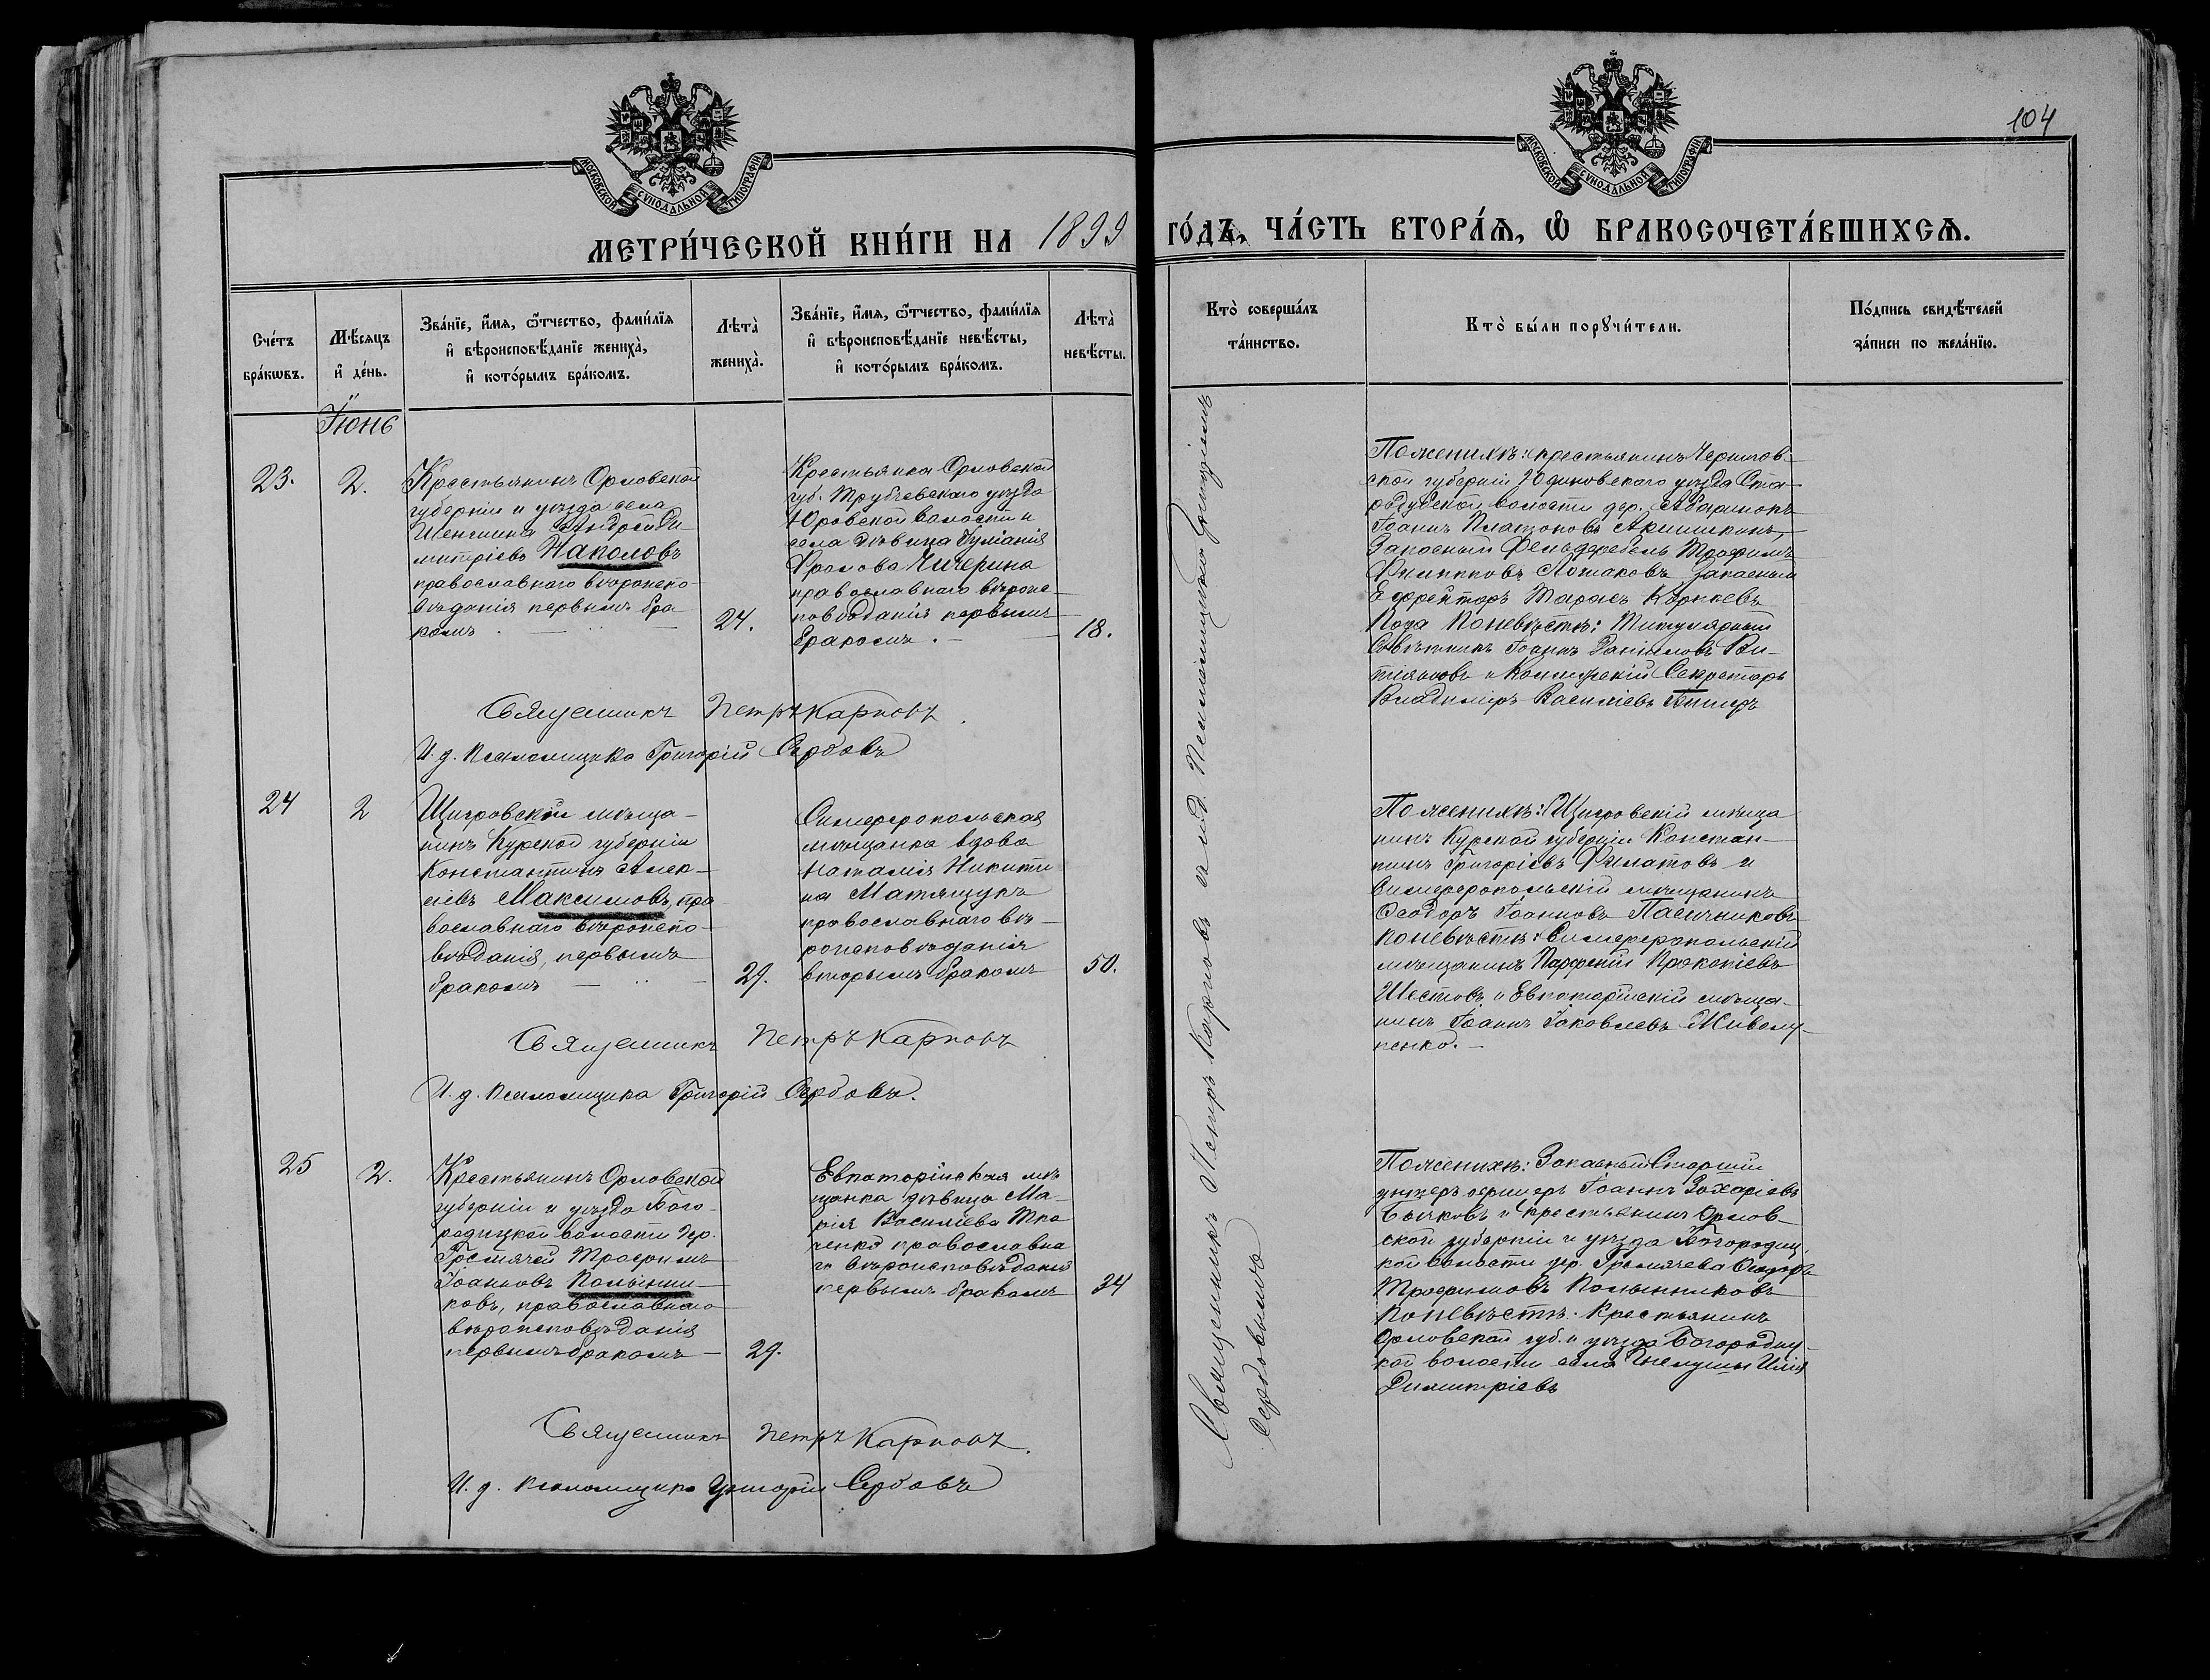 104
МОСКОВСКОЙ СѴНОДАЛЬНОЙ ТИПОГРАФІИ
МОСКОВСКОЙ СѴНОДАЛЬНОЙ ТИПОГРАФІИ
МЕТРИ́ЧЕСКОЙ КНИ́ГИ НА 1899
ГО́ДЪ, ЧА́СТЬ ВТОРА́Ѧ, Ѽ БРАКОСОЧЕТА́ВШИХСѦ.
Сче́тъ
бра́кωвъ.
Мѣ́сяцъ
и҆ де́нь.
Зва́нїе, и҆́мя, ѻ҆́тчество, фами́лїя
и҆ вѣроисповѣ́данїе жениха̀,
и҆ кото́рымъ бра́комъ.
Лѣта̀
жениха̀.
Зва́нїе, и҆́мя, ѻ҆́тчество, фами́лїя
и҆ вѣроисповѣ́данїе невѣ́сты,
и҆ кото́рымъ бра́комъ.
Лѣта̀
невѣ́сты.
Кто̀ соверша́лъ
та́инство.
Кто̀ бы́ли порꙋчи́тели.
По́дпись свидѣ́телей
за́писи по жела́нїю.
Іюнь
23.
2.
Крестьянинъ Орловской
губерніи и уѣзда села
Шеншина Андрей Ди-
митріевъ Наполовъ
православнаго вѣроиспо-
вѣданія первымъ бра
комъ
24.
Крестьянка Орловской
губ. Трубчевскаго уѣзда
Юровской волости и
села дѣвица Іуліанія
Фролова Чичерина
православнаго вѣроис-
повѣданія первымъ
бракомъ.
18.
Поженихѣ: крестьянинъ Чернигов-
ской губерніи уѣзда Ста-
родубской волости дер.
Іоаннъ Платоновъ
Запасный Фельдфебель Трофимъ
Филипповъ запасный
Ефрейторъ Тарасъ
Поневѣстѣ: Титулярный
Совѣтникъ Іоаннъ Даниловъ Ви-
и Коллежскій Секретарь
Владиміръ Василіевъ
Священникъ Петръ Карповъ.
И. д. Псаломщика Григорій Сербовъ
24
2
Щигровскій мѣща-
нинъ Курской губерніи
Константинъ Алек-
сіевъ Максимовъ, пра
вославнаго вѣроиспо-
вѣданія, первымъ
бракомъ
29.
Симферопольская
мѣщанка вдова
Наталія Никити
на Матящукъ
православнаго вѣ-
роисповѣданія
вторымъ бракомъ
50.
Поженихѣ: Щигровскій мѣща
нинъ Курской губерніи Констан-
тинъ Григоріевъ Филатовъ и
Симферопольскій мѣщанинъ
Ѳеодоръ Іоанновъ Пасичниковъ
Поневѣстѣ: Симферопольскій
мѣщанинъ Парфеній Прокопіевъ
Шестовъ и Евпаторійскій мѣща-
нинъ Іоаннъ Іаковлевъ Миволу-
пенко.
Священникъ Петръ Карповъ
И. д. Псаломщика Григорій Сербовъ.
25
2.
Крестьянинъ Орловской
губерніи и уѣзда Бого-
родицкой волости дер.
Гремячей Трофимъ
Іоанновъ Полынни-
ковъ, православнаго
вѣроисповѣданія
первымъ бракомъ
29.
Евпаторійская мѣ
щанка дѣвица Ма-
рія Василіева Тка
ченко православна
го вѣроисповѣданія
первымъ бракомъ
34
Поженихѣ: Запасный Старшій
унтеръ офицеръ Іоаннъ Захаріевъ
Бычковъ и крестьянинъ Орлов-
ской губерніи и уѣзда Богородиц
кой волости дер. Гремячева Ѳеодоръ
Трофимовъ Полынниковъ
Поневѣстѣ: Крестьянинъ
Орловской губ. и уѣзда Богородиц-
кой волости села Илія
Димитріевъ
Священникъ Петръ Карповъ.
И. д. псаломщика Григорій Сербовъ
Священникъ Петръ Карповъ съ и.д. Псаломщика Григоріемъ
Сербовымъ